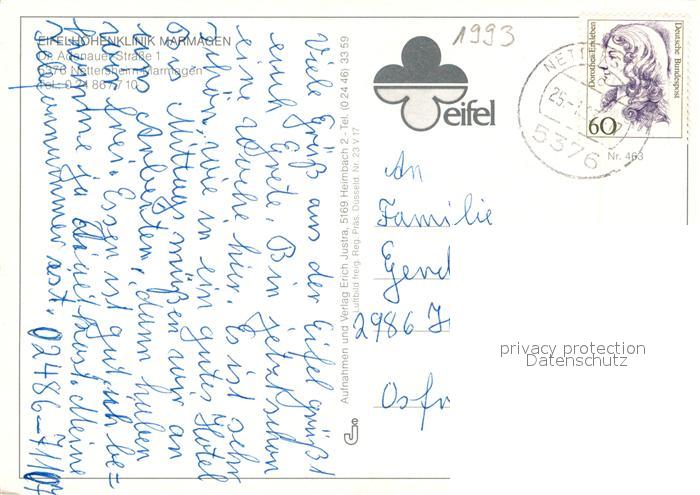 EIFELHÖHENKLINIK MARMAGEN
Dr. Adenauer Straße 1
5376 Nettersheim-Marmagen
Tel.: 0 24 86/7 10
Viele Grüße aus der Eifel grüßt
euch Grete. Bin jetzt schon
eine Woche hier. Es ist sehr
schön, wie in ein gutes Hotel
Bis Mittags müßen wir an
das Arbeiten, dann haben
wir frei. Essen ist gut, ich be=
komme ja Diät Kost. Meine
Telefonnummer ist. 02486-71107
Aufnahmen und Verlag Erich Justra, 5169 Heimbach 2 - Tel. (0 24 46) 33 59
Luftbild freig. Reg. Präs. Düsseld. Nr. 23 V 17
eifel
1993
NETT
25.-1
5376
Dorothea Erxleben
Deutsche Bundespost
60
Nr. 463
An
Familie
Gerd
2986
Ostfr
privacy protection
Datenschutz